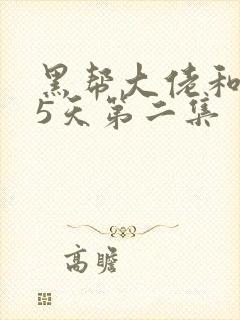 黑帮大佬和
5天第二集
高瞻